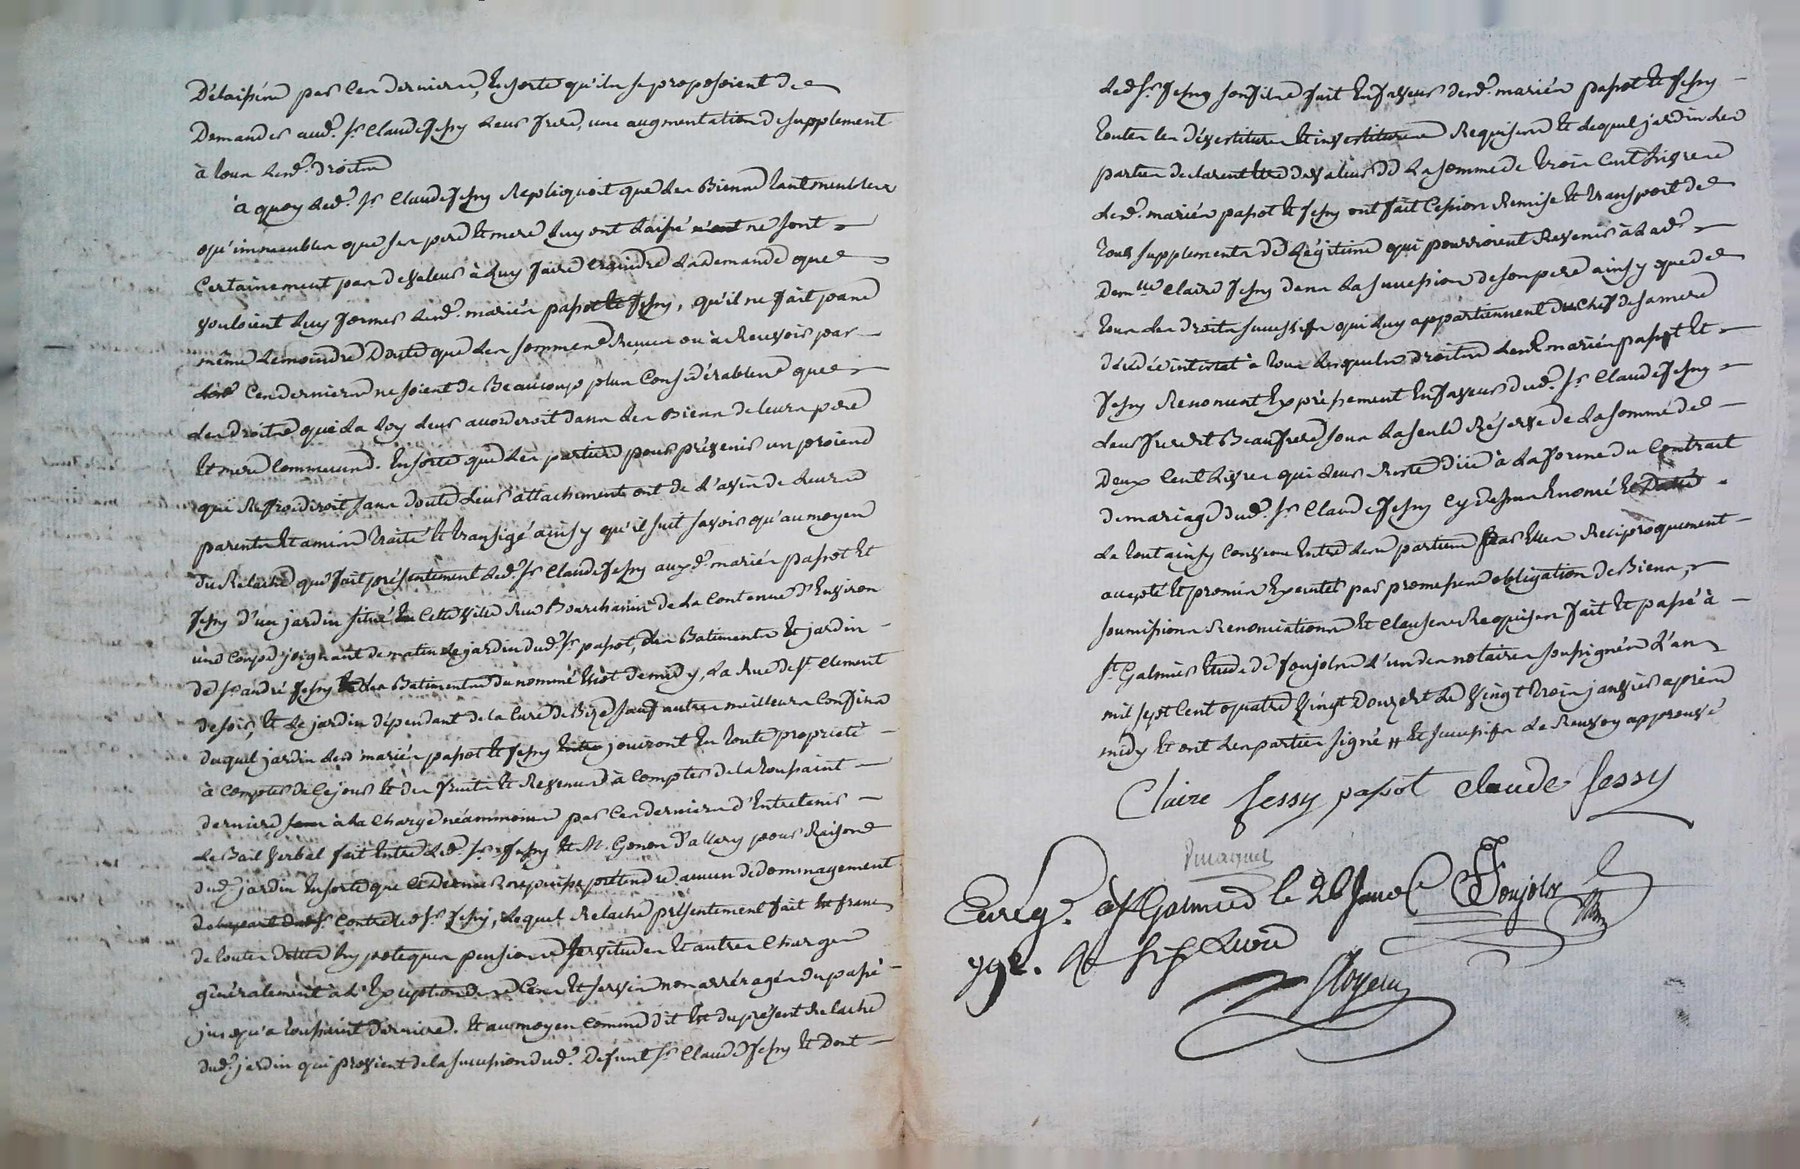 Délaissés par ces derniers, Ensorte qu'ils se proposoient de
Demander aud. Sr Claude Jessy leur frere, une augmentation de supplement
à tous lesd. droits
à quoy led. Sr Claude Jessy Repliquoit que les Biens tant meubles
qu'immeubles que ses pere et mere luy ont laissé ne sont
Certainement pas de valeur à luy faire craindre la demande que
vouloient luy former lesd. mariés passot et Jessy, qu'il ne fait pas
même le moindre Doute que les sommes Reçues ou à Recevoir par
Ces derniers ne soient de Beaucoup plus Considérables que
les droits que la Loy leur accorderoit dans les Biens de leurs pere
et mere Communs. Ensorte que les parties pour prévenir un procès
qui Refroidiroit sans doute leur attachement ont de l'avis de leurs
parents et amis traité et transigé ainsy qu'il suit savoir qu'au moyen
du Relaché que fait présentement led. Sr Claude Jessy auxd. mariés passot et
Jessy d'un jardin situé En Cette ville Rue Bouchanin de la Contenue d'Environ
une Coupe joignant de matin le jardin dud. Sr passot, des Batiments et jardin
de Sr andré Jessy et des Batiments du nommé de midy, la Rue de St Clement
de soir, et le jardin dépendant de la Cure de Bize sauf autres meilleurs Confins
duquel jardin lesd. mariés passot et Jessy jouiront En toute propriété
à Compter de Ce jour et des fruits et Revenus à Compter de la toussaint
derniere à la Charge néammoins par Ces derniers d'Entretenir
le Bail verbal fait Entre led. Sr Jessy et M. Genon d'allary pour Raison
dud. jardin Ensorte que Ce dernier ne puisse prétendre aucun dedommagement
Contre led. Sr Jessy, Lequel Relaché présentement fait est franc
de toutes dettes hypoteques pensions servitudes et autres Charges
généralement à l'Exception des Cens et servis non arréragés du passé
jusqu'a toussaint derniere. Et au moyen Comme dit Est du présent Relaché
dud. jardin qui provient de la succession dud. Defunt Sr Claude Jessy et Dont
led. Sr Jessy son fils fait En faveur desd. mariés passot et Jessy
toutes les dévestitures et investitures Requises et Lequel jardin les
parties declarent Etre de valeur de La somme de trois Cent Livres
lesd. mariés passot et Jessy ont fait Cession Remise et transport de
tous supplements de Légitime qui pourroient Revenir à Lad.
Demlle Claire Jessy dans la succession de son pere ainsy que de
tous les droits successifs qui luy appartiennent du Chef de sa mere
décédée intestat à tous lesquels droits lesd. mariés passot et
Jessy Renoncent Expréssement En faveur dud. Sr Claude Jessy
leur frere et Beaufrere sous la seule Réserve de La somme de
Deux Cent Livres qui leur Reste Due à la forme du Contrat
de mariage dud. Sr Claude Jessy Cy dessus Enoncé
Le tout ainsy Convenu Entre lesd. parties par Elles Réciproquement
accepté et promis Executer par promesse obligation de Biens,
soumissions Renonciations et Clauses Requises fait et passé à
St Galmier Etude de Poujolx l'un des notaires soussignés L'an
mil sept Cent quatre vingt Douze et Le vingt trois janvier après
midy Et ont les parties signé Et successifs de Renvoy approuvé
Claire Jessy passot Claude Jessy
Enreg. à St Galmier le 26 Janer
792.